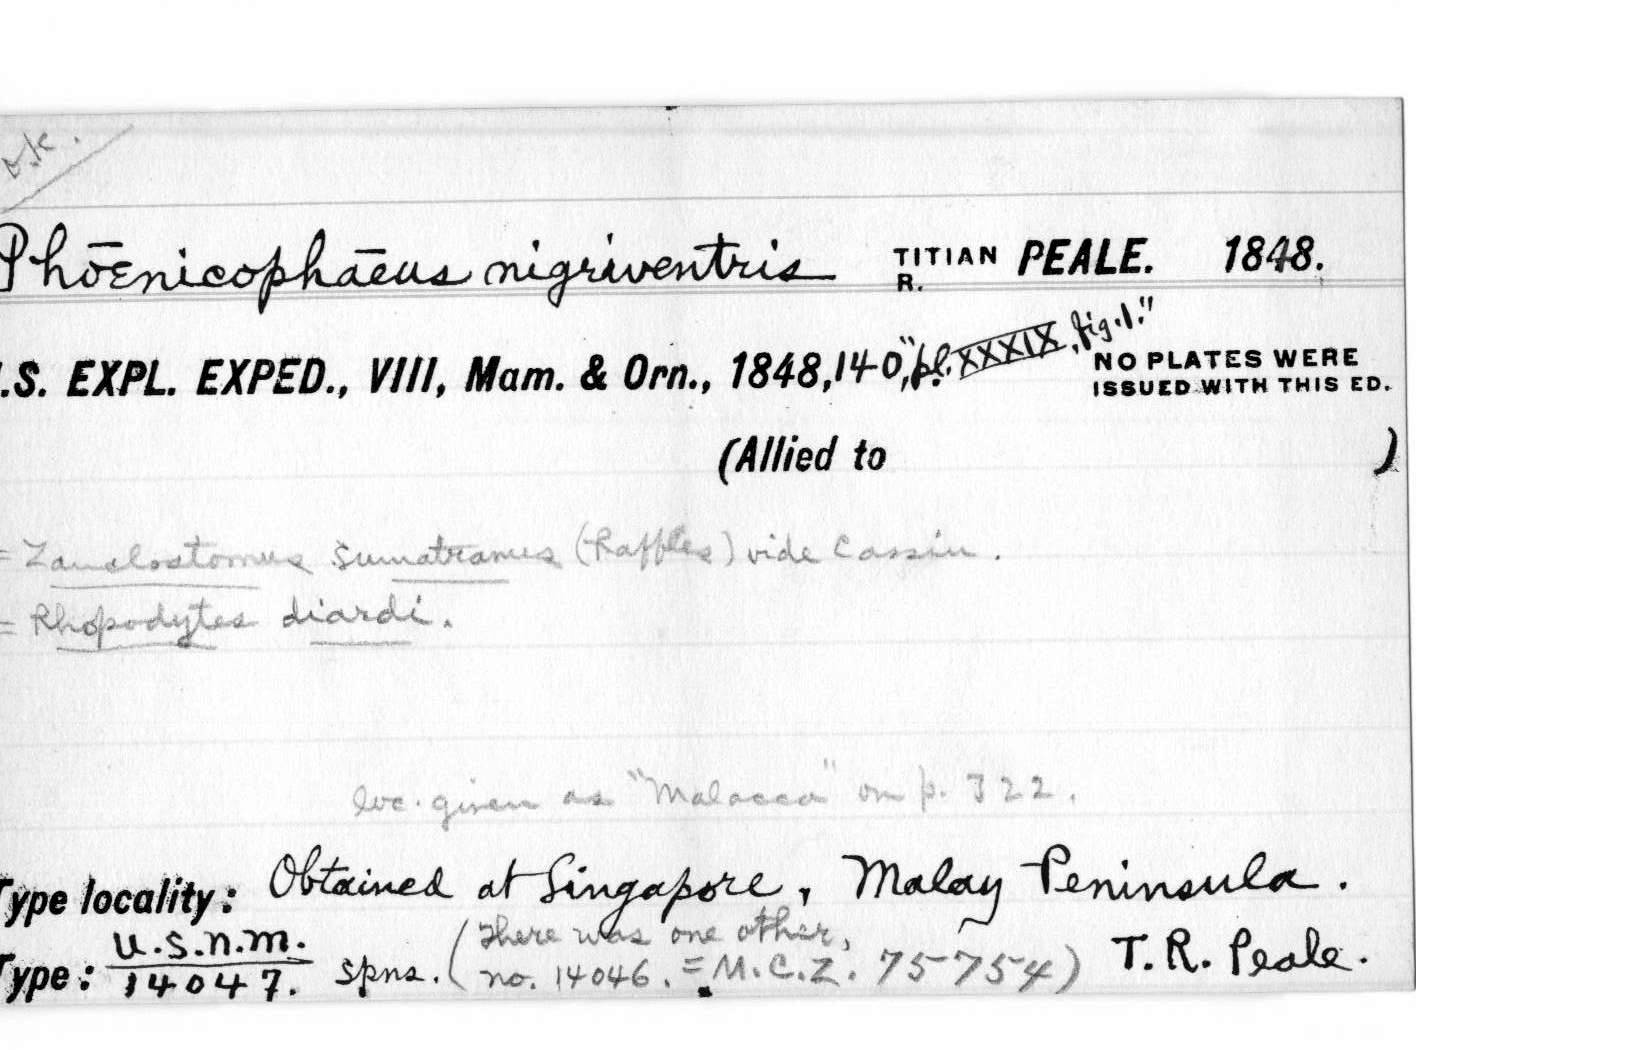 o.k.
Phœnicophæus nigriventris TITIAN R. PEALE. 1848.
.S. EXPL. EXPED., VIII, Mam. & Orn., 1848, 140, "pl. XXXIX, fig. 1."
NO PLATES WERE
ISSUED WITH THIS ED.
(Allied to )
= Zanclostomus Sumatranus (Raffles) vide Cassin.
= Rhopodytes diardi.
loc. given as "Malacca" on p. 322.
Type locality: Obtained at Singapore, Malay Peninsula.
Type: U.S.N.M. 14047. spns. (There was one other, no. 14046. = M.C.Z. 75754) T. R. Peale.